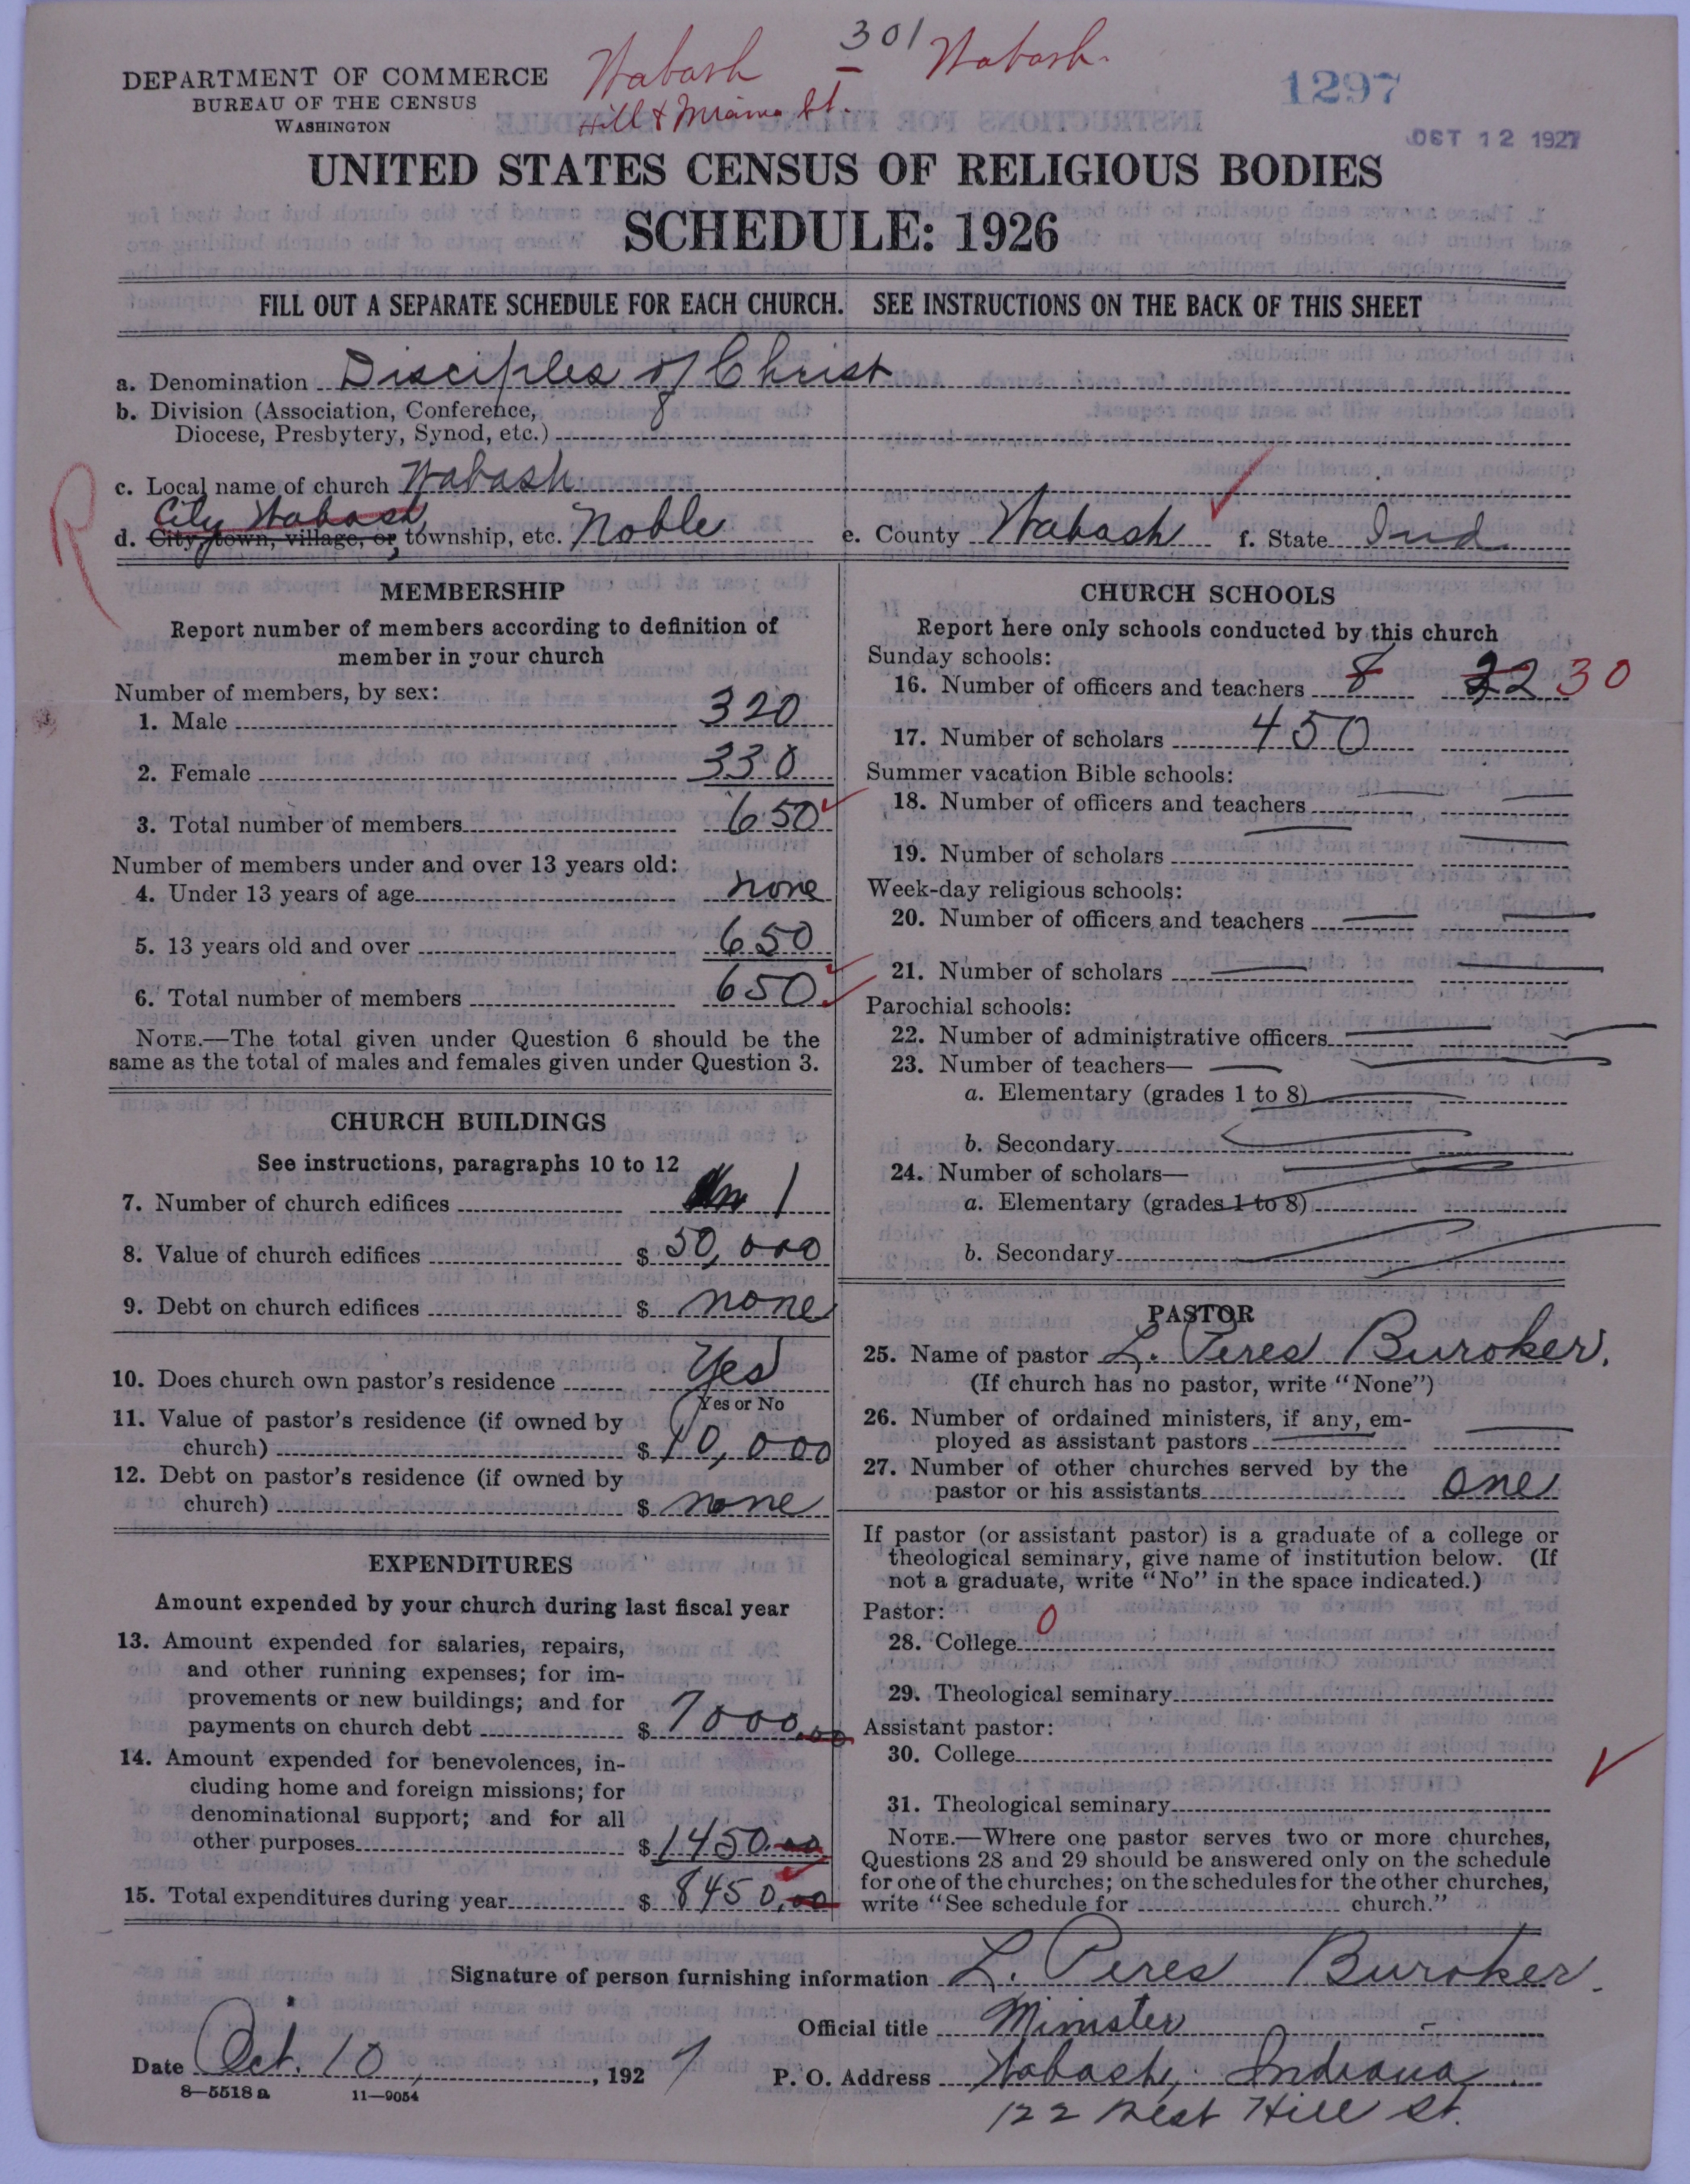 Wabash 301 Wabash.
Hill & Miami St.
1297
OCT 12 1927
DEPARTMENT OF COMMERCE
BUREAU OF THE CENSUS
WASHINGTON
UNITED STATES CENSUS OF RELIGIOUS BODIES
SCHEDULE: 1926
FILL OUT A SEPARATE SCHEDULE FOR EACH CHURCH. SEE INSTRUCTIONS ON THE BACK OF THIS SHEET
a. Denomination Disciples of Christ
b. Division (Association, Conference,
Diocese, Presbytery, Synod, etc.)
c. Local name of church Wabash
City Wabash
d. City, town, village, or township, etc. Noble e. County Wabash f. State Ind
R
MEMBERSHIP
Report number of members according to definition of
member in your church
Number of members, by sex:
1. Male 320
2. Female 330
3. Total number of members 650
Number of members under and over 13 years old:
4. Under 13 years of age none
5. 13 years old and over 650
6. Total number of members 650
NOTE.—The total given under Question 6 should be the
same as the total of males and females given under Question 3.
CHURCH BUILDINGS
See instructions, paragraphs 10 to 12
7. Number of church edifices 1
8. Value of church edifices $ 50,000
9. Debt on church edifices $ none
10. Does church own pastor's residence Yes
Yes or No
11. Value of pastor's residence (if owned by
church) $ 10,000
12. Debt on pastor's residence (if owned by
church) $ none
EXPENDITURES
Amount expended by your church during last fiscal year
13. Amount expended for salaries, repairs,
and other running expenses; for im-
provements or new buildings; and for
payments on church debt $ 7000.00
14. Amount expended for benevolences, in-
cluding home and foreign missions; for
denominational support; and for all
other purposes $ 1450.00
15. Total expenditures during year $ 8450.00
CHURCH SCHOOLS
Report here only schools conducted by this church
Sunday schools:
16. Number of officers and teachers 8 22 30
17. Number of scholars 450
Summer vacation Bible schools:
18. Number of officers and teachers
19. Number of scholars
Week-day religious schools:
20. Number of officers and teachers
21. Number of scholars
Parochial schools:
22. Number of administrative officers
23. Number of teachers—
a. Elementary (grades 1 to 8)
b. Secondary
24. Number of scholars—
a. Elementary (grades 1 to 8)
b. Secondary
PASTOR
25. Name of pastor L. Peres Buroker.
(If church has no pastor, write "None")
26. Number of ordained ministers, if any, em-
ployed as assistant pastors
27. Number of other churches served by the
pastor or his assistants one
If pastor (or assistant pastor) is a graduate of a college or
theological seminary, give name of institution below. (If
not a graduate, write "No" in the space indicated.)
Pastor:
28. College 0
29. Theological seminary
Assistant pastor:
30. College
31. Theological seminary
NOTE.—Where one pastor serves two or more churches,
Questions 28 and 29 should be answered only on the schedule
for one of the churches; on the schedules for the other churches,
write "See schedule for church."
Signature of person furnishing information L. Peres Buroker.
Official title Minister
Date Oct. 10, 1927 P. O. Address Wabash, Indiana
122 West Hill St.
8—5518 a 11—9054